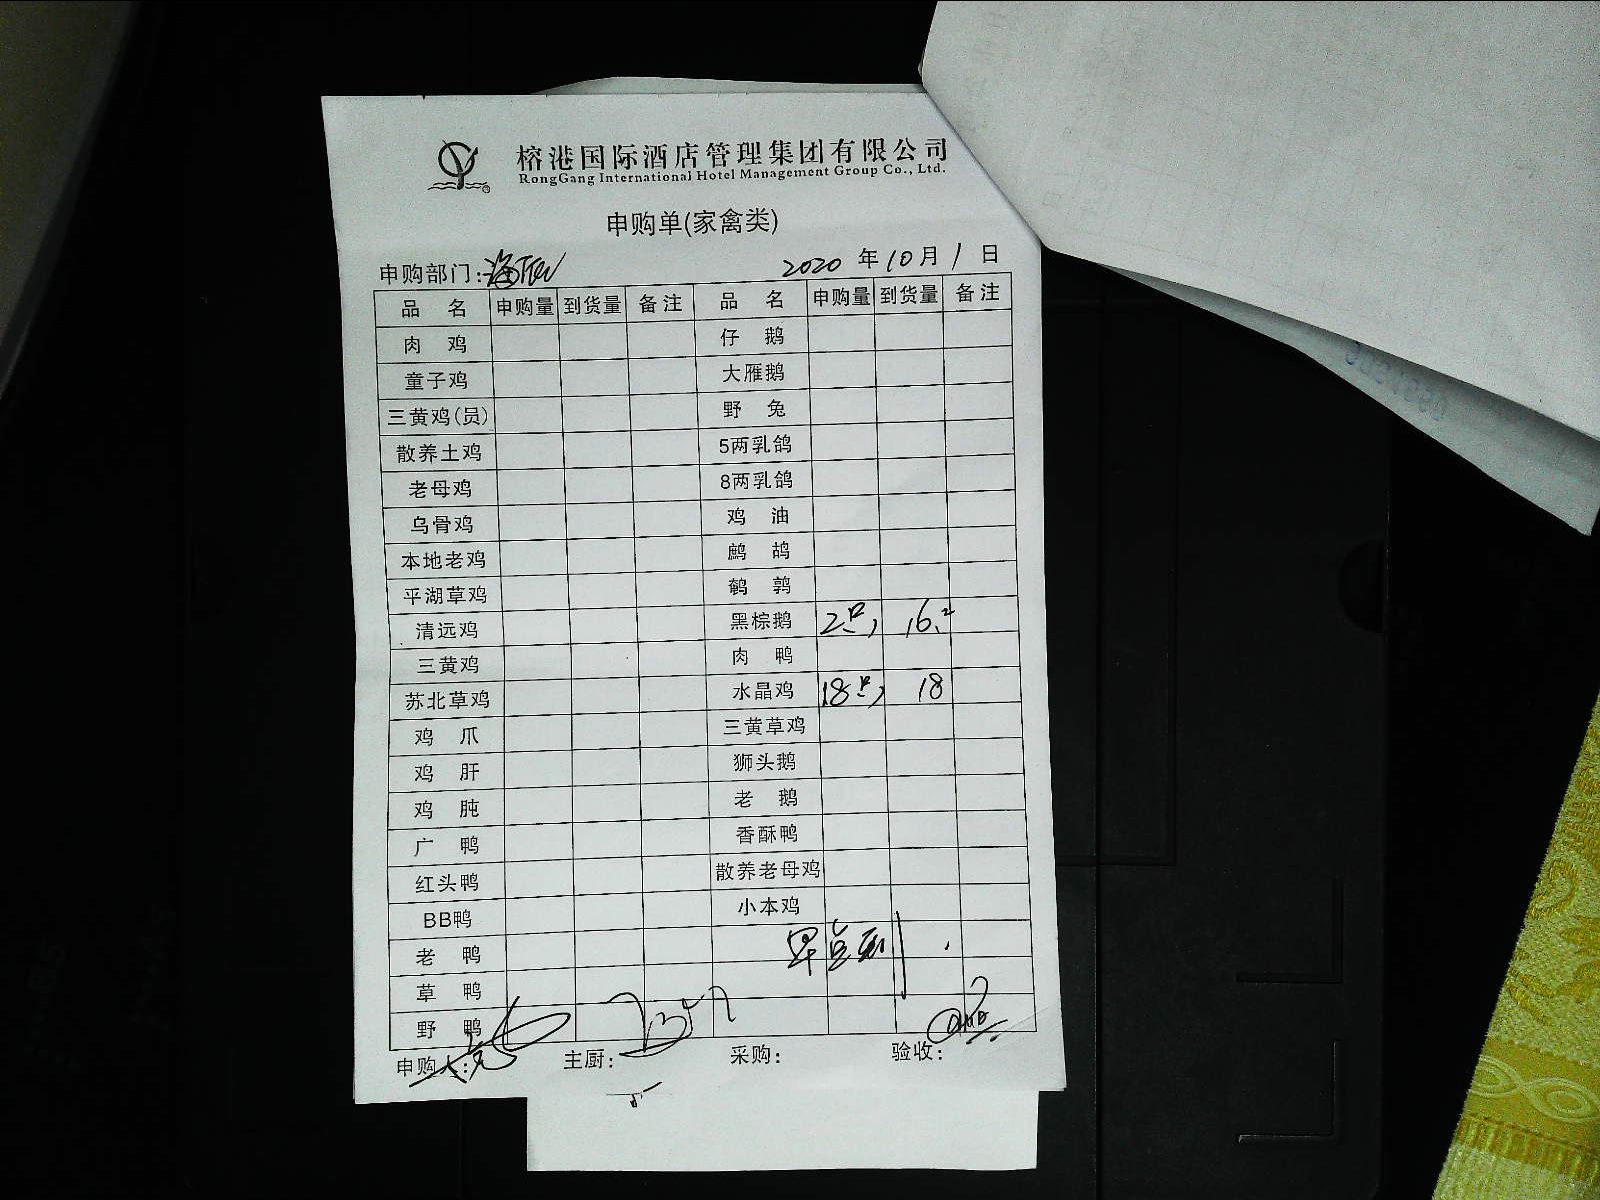 榕港国际酒店管理集团有限公司
RongGang International Hotel Management Group Co., Ltd.
申购单(家禽类)
申购部门: 2020 年 10 月 1 日
品 名 申购量 到货量 备注 品 名 申购量 到货量 备注
肉 鸡 仔 鹅
童子鸡 大雁鹅
三黄鸡(员) 野 兔
散养土鸡 5两乳鸽
老母鸡 8两乳鸽
乌骨鸡 鸡 油
本地老鸡 鹧 鸪
平湖草鸡 鹌 鹑
清远鸡 黑棕鹅 2只 16.2
三黄鸡 肉 鸭
苏北草鸡 水晶鸡 18只 18
鸡 爪 三黄草鸡
鸡 肝 狮头鹅
鸡 肫 老 鹅
广 鸭 香酥鸭
红头鸭 散养老母鸡
BB鸭 小本鸡
老 鸭 早点到
草 鸭
野 鸭
申购人: 主厨: 采购: 验收: